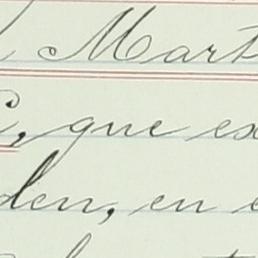 Mart
, que ex
den, en